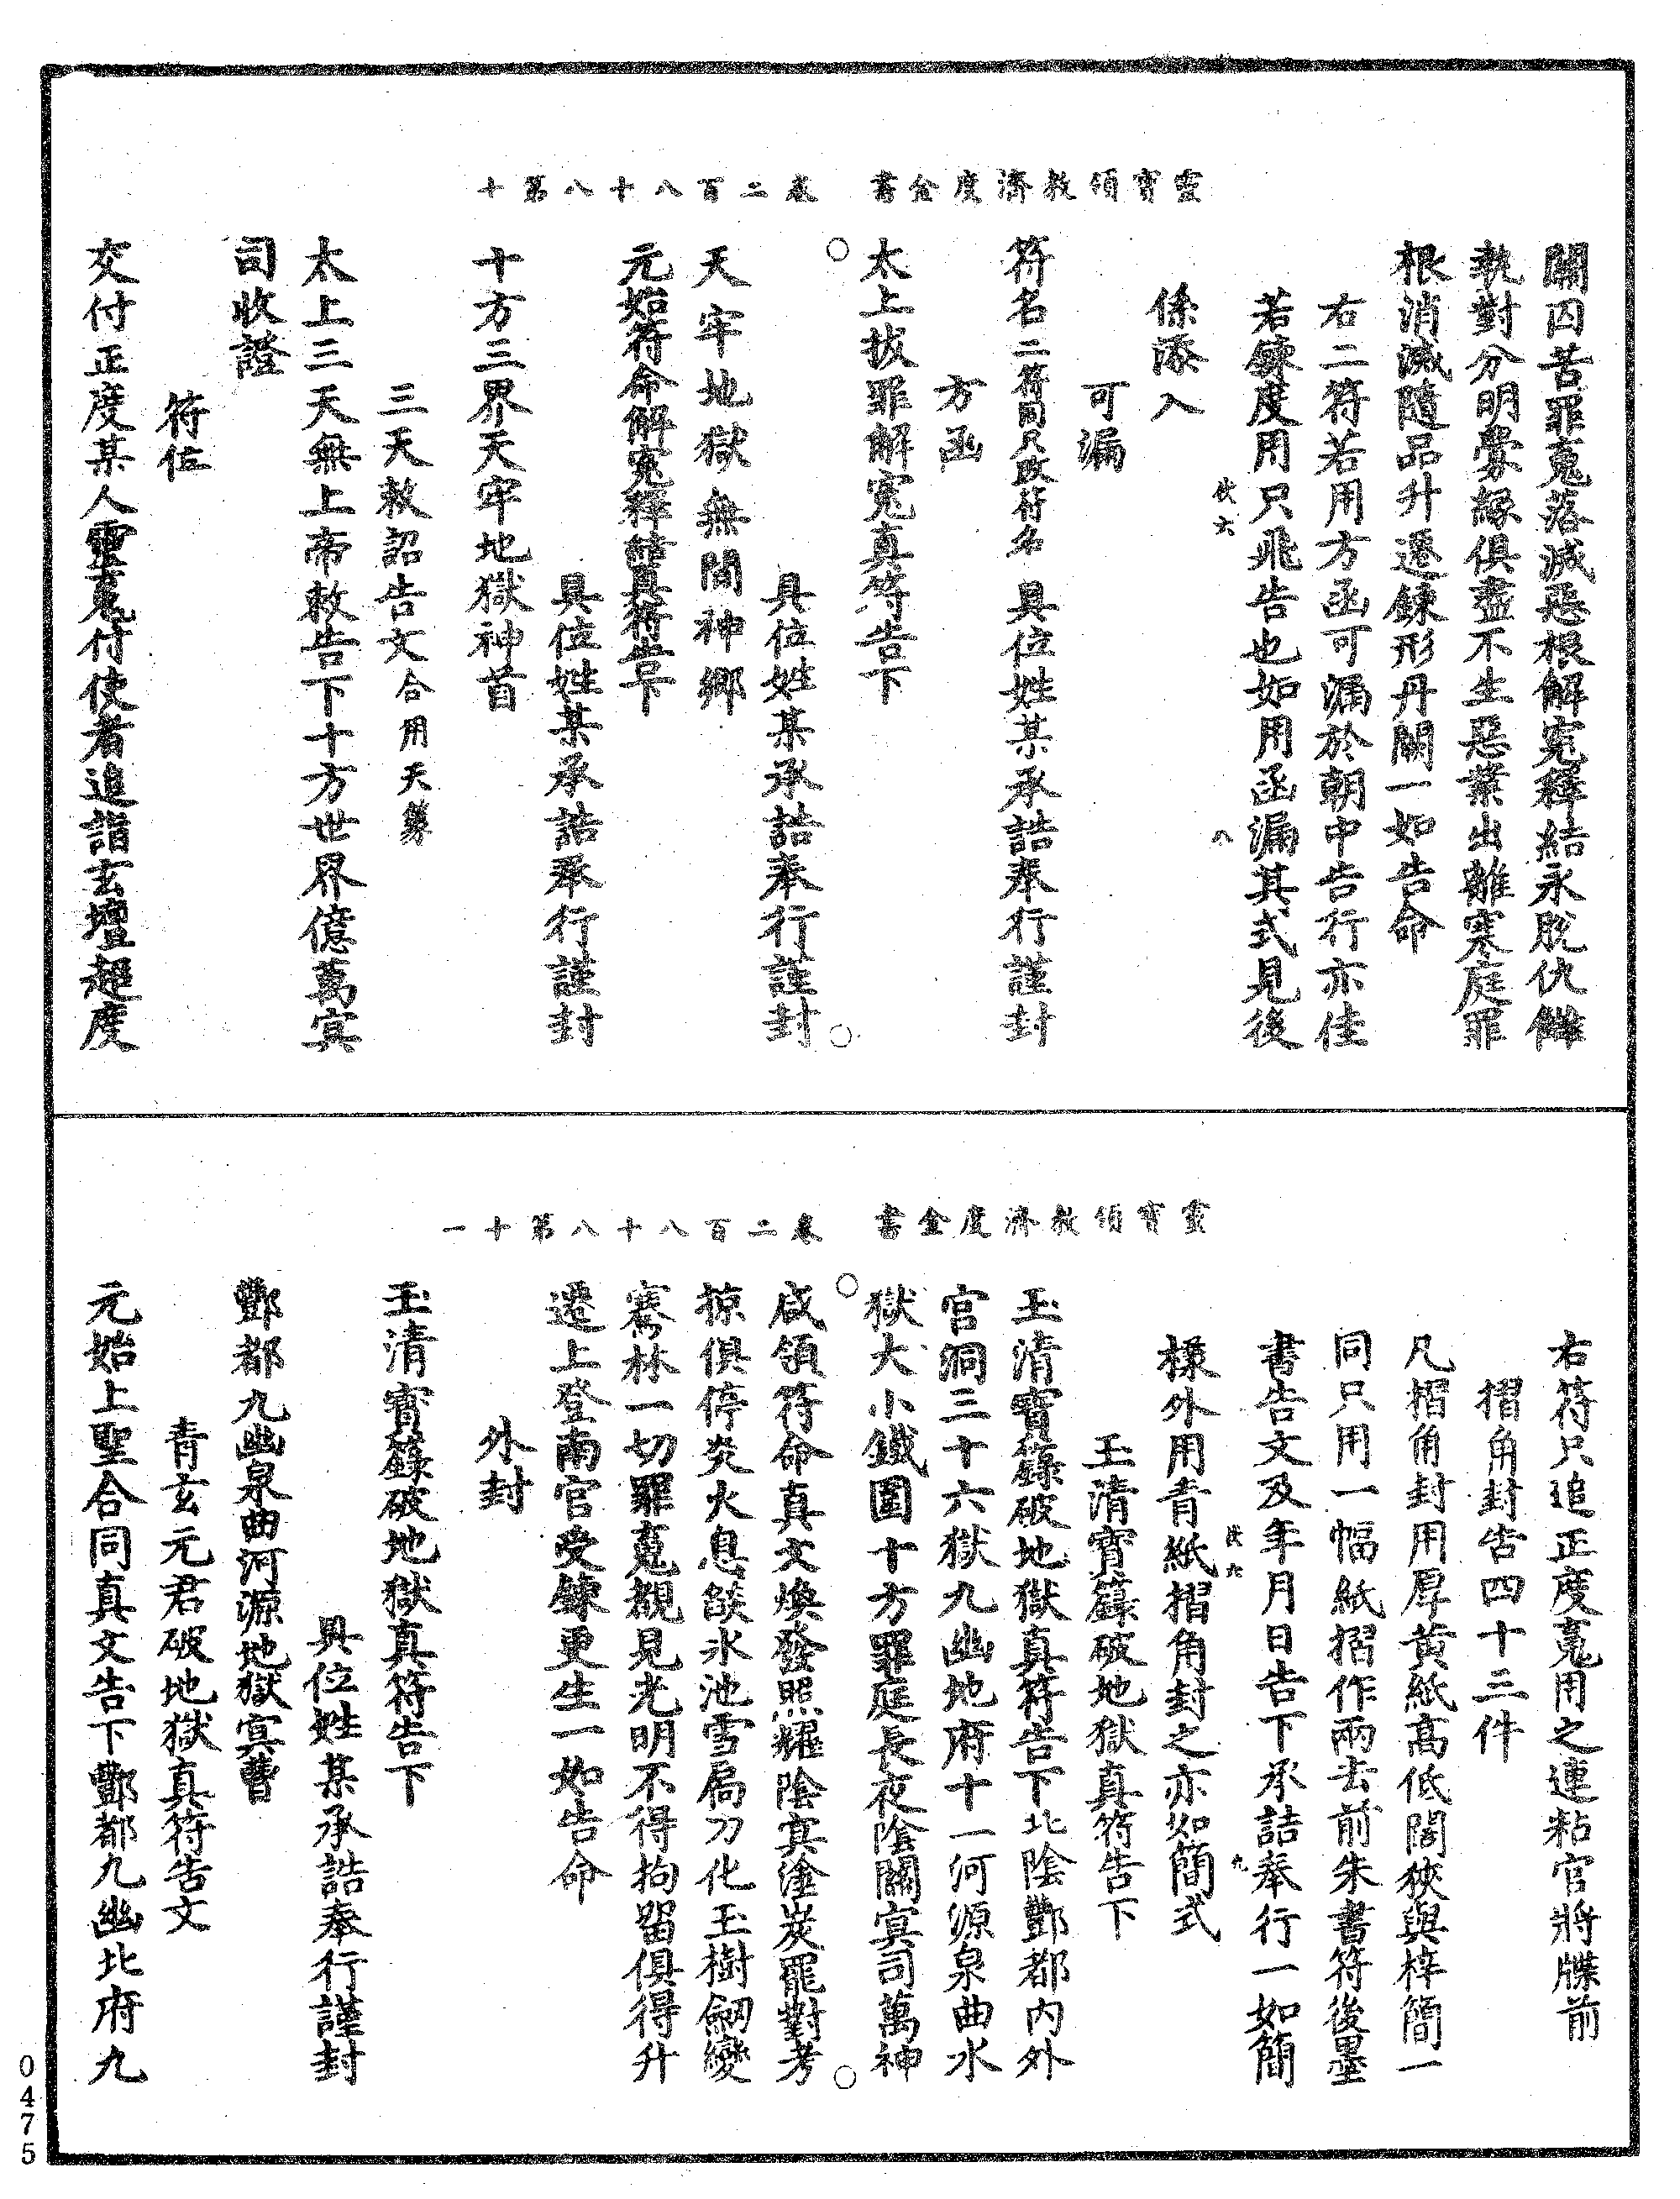 靈寶領教濟度金書　卷二百八十八第十
關囚苦罪䰟落滅惡根解寃釋結永脫仇讎
執對分明㸑緣俱盡不生惡業出離寒庭罪
根消滅隨品升遷鍊形丹闕一如告命
右二符若用方函可漏於朝中告行亦佳
若鍊度用只飛告也如用函漏其式見後
係添入
可漏
符名二符同只改符名　具位姓某承誥奉行謹封
方函
太上拔罪解寃真符告下
具位姓某承誥奉行謹封
天牢地獄無間神鄉
元始符命解寃釋結真符告下
具位姓某承誥奉行謹封
十方三界天牢地獄神首
三天赦詔告文合用天篆
太上三天無上帝敕告下十方世界億萬㝠
司收證
符位
交付正度某人靈䰟付使者追詣玄壇超度
靈寶領教濟度金書　卷二百八十八第十一
右符只追正度䰟用之連粘官將牒前
摺角封告四十三件
凡摺角封用厚黃紙高低闊狹與梓簡一
同只用一幅紙摺作兩去前朱書符後墨
書告文及年月日告下承誥奉行一如簡
樣外用青紙摺角封之亦如簡式
玉清寶籙破地獄真符告下
玉清寶籙破地獄真符告下北陰酆都內外
宮洞三十六獄九幽地府十一河源泉曲水
獄大小鐵圍十方罪庭長夜陰關㝠司萬神
咸領符命真文煥發照耀陰㝠塗炭罷對考
掠俱停炎火息燄氷池雪局刀化玉樹劒變
騫林一切罪䰟覩見光明不得拘留俱得升
遷上登南宮受鍊更生一如告命
外封
玉清寶籙破地獄真符告下
具位姓某承誥奉行謹封
酆都九幽泉曲河源地獄㝠曹
青玄元君破地獄真符告文
元始上聖合同真文告下酆都九幽北府九
0475